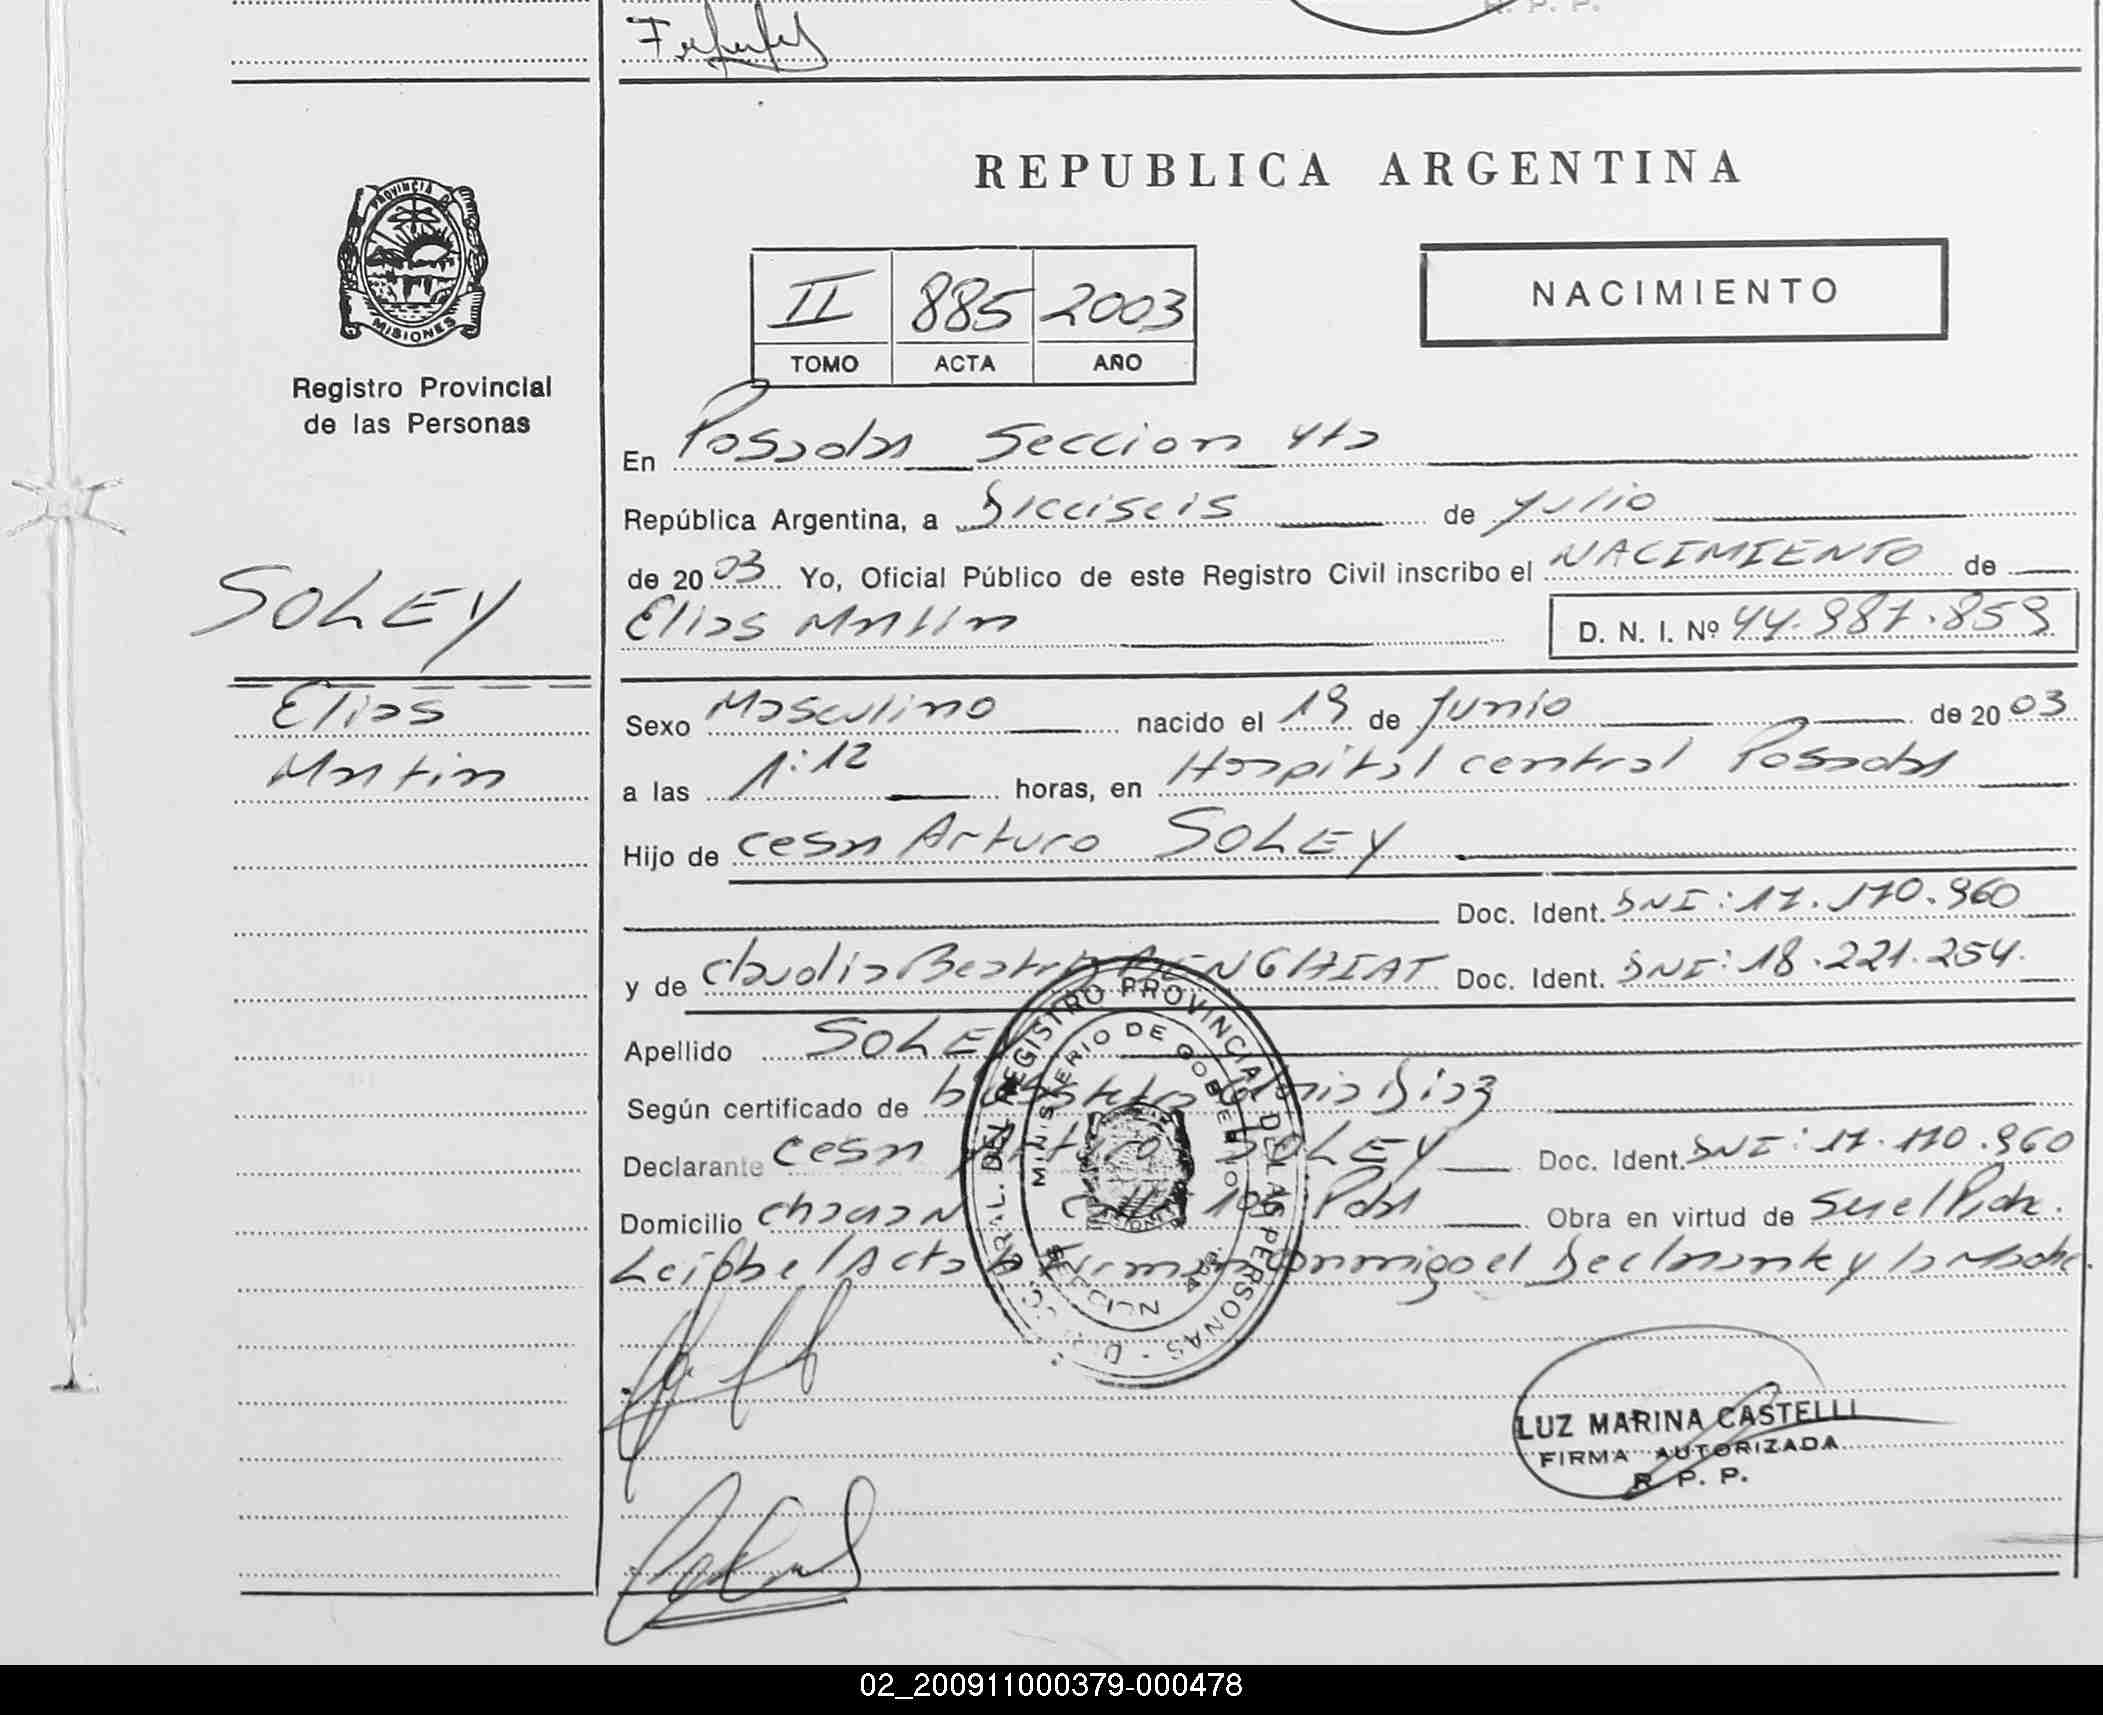 REPUBLICA ARGENTINA
PROVINCIA DE
MISIONES
Registro Provincial
de las Personas
II 885 2003
TOMO ACTA AÑO
NACIMIENTO
En Posadas Seccion 4ta
República Argentina, a Dieciseis de Julio
de 20 03 Yo, Oficial Público de este Registro Civil inscribo el NACIMIENTO de
Elias Martin D. N. I. Nº 44.987.859
SOLEY
Elias
Martin
Sexo Masculino nacido el 19 de Junio de 20 03
a las 1:12 horas, en Hospital central Posadas
Hijo de Cesar Arturo SOLEY
Doc. Ident. DNI: 17.170.960
y de Claudia Beatriz BENGHIAT Doc. Ident. DNI: 18.221.254.
Apellido SOLEY
Según certificado de Diaz
Declarante Cesar Arturo SOLEY Doc. Ident. DNI: 17.170.960
Domicilio Pdas Obra en virtud de ser el Padre.
Leida el Acta la Firman conmigo el Declarante y la Madre.
REGISTRO PROVINCIAL DE LAS PERSONAS
MINISTERIO DE GOBIERNO
LUZ MARINA CASTELLI
FIRMA AUTORIZADA
R. P. P.
02_200911000379-000478